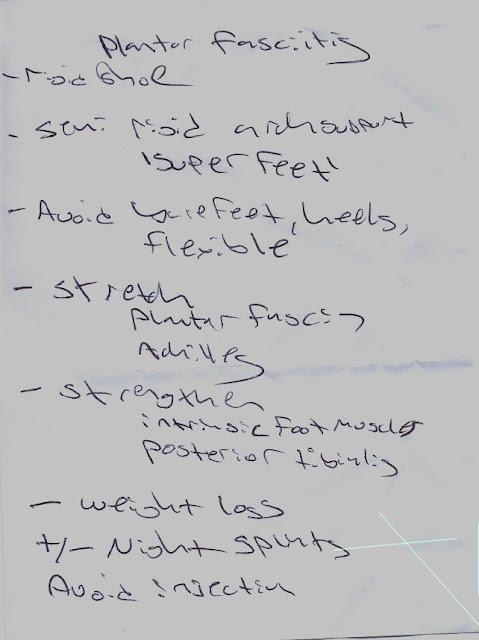 Plantar fasciitis
- rigid shoe
- semi rigid arch support
'super feet'
- Avoid bare feet, heels,
flexible
- stretch
plantar fascia
Achilles
- strengthen
intrinsic foot muscles
posterior tibialis
- weight loss
+/- Night splints
Avoid injection